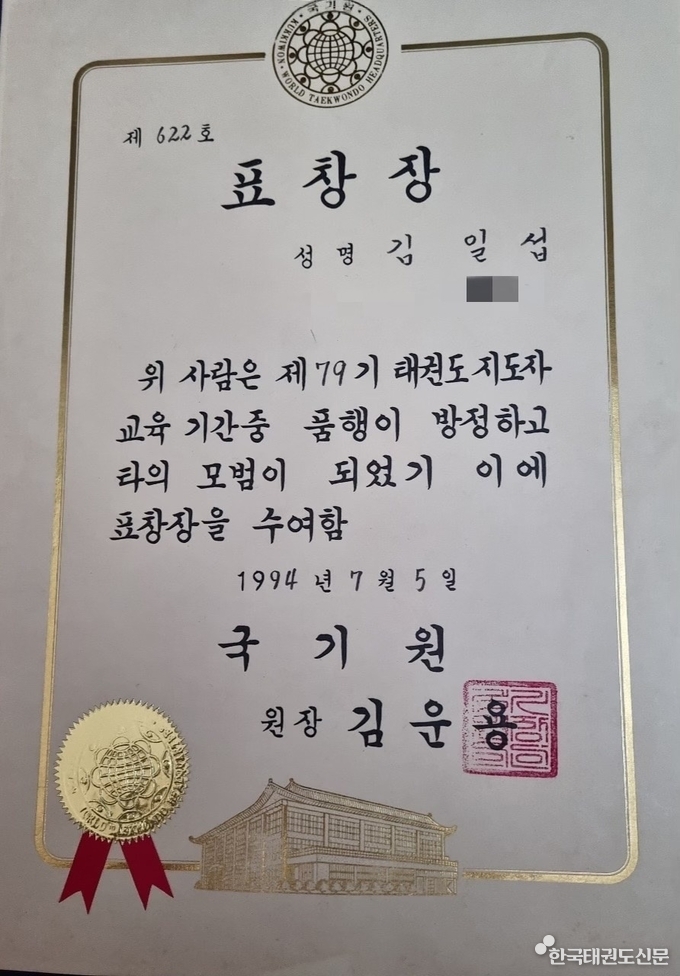 국기원
KUKKIWON · WORLD TAEKWONDO HEADQUARTERS
제 622호
표창장
성명 김 일 섭
위 사람은 제79기 태권도지도자
교육 기간중 품행이 방정하고
타의 모범이 되었기 이에
표창장을 수여함
1994 년 7 월 5 일
국 기 원
원장 김 운 용
한국태권도신문